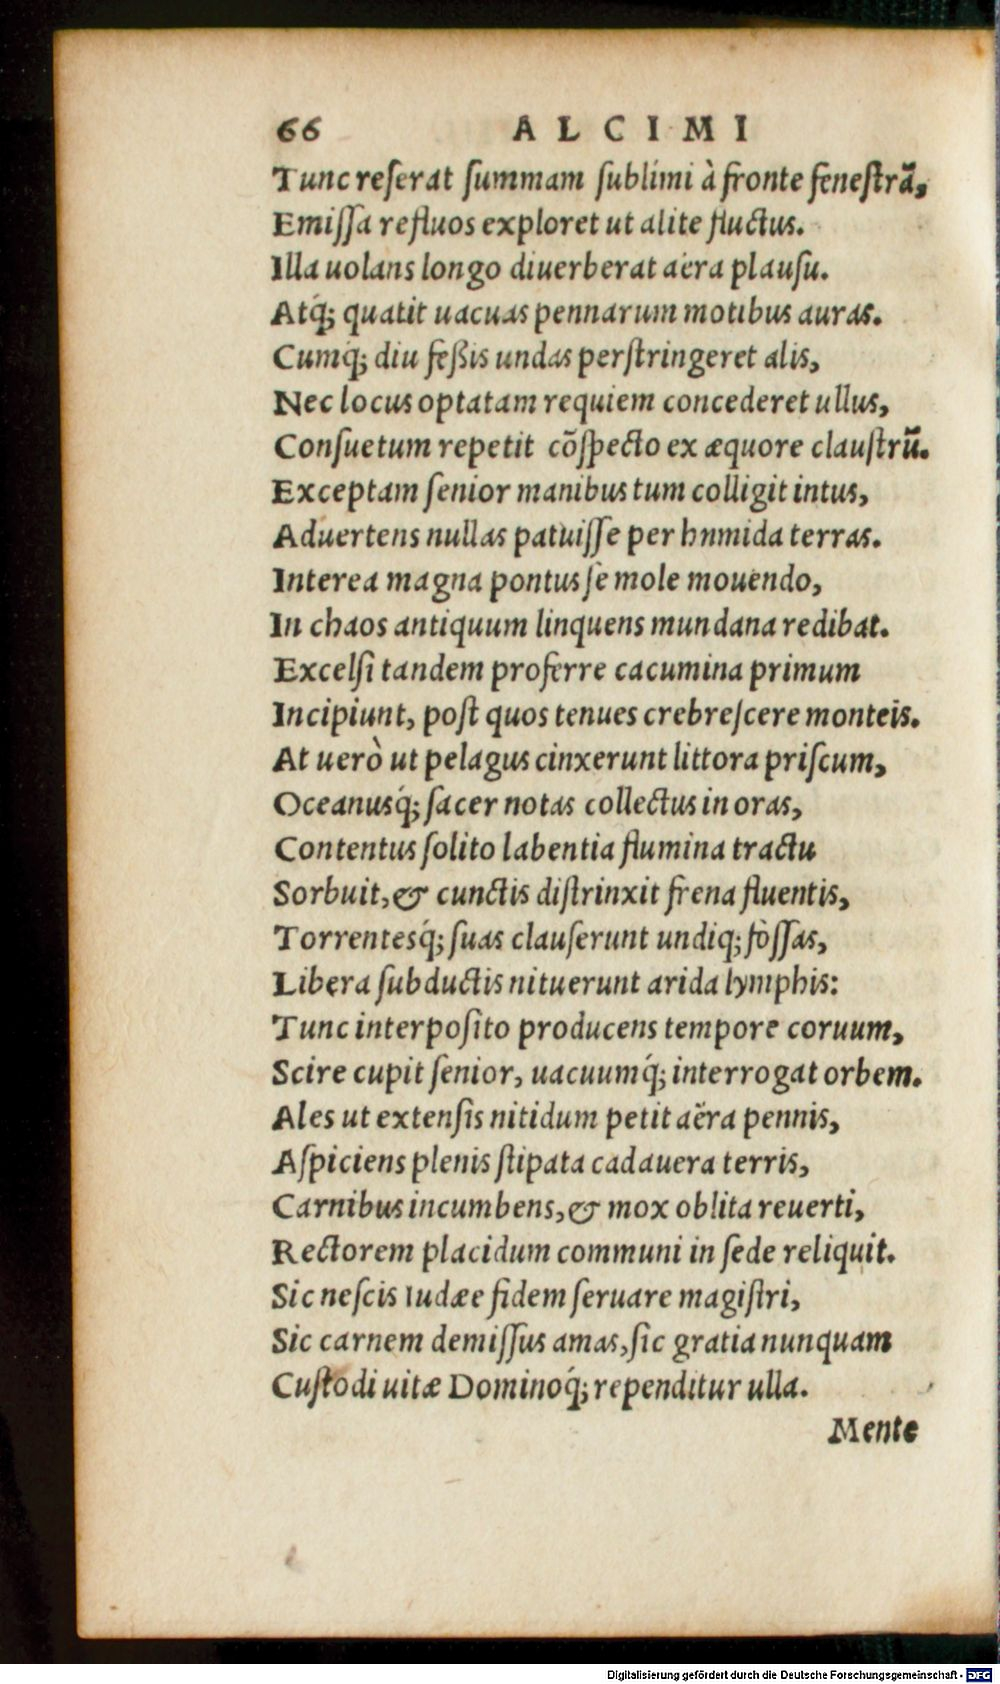 66 ALCIMI
Tunc reſerat ſummam ſublimi à fronte feneſtrā,
Emiſſa refluos exploret ut alite fluctus.
Illa uolans longo diuerberat aera plauſu.
Atq́; quatit uacuas pennarum motibus auras.
Cumq́; diu feßis undas perſtringeret alis,
Nec locus optatam requiem concederet ullus,
Conſuetum repetit cōſpecto ex æquore clauſtrū.
Exceptam ſenior manibus tum colligit intus,
Aduertens nullas patuiſſe per hnmida terras.
Interea magna pontus ſe mole mouendo,
In chaos antiquum linquens mundana redibat.
Excelſi tandem proferre cacumina primum
Incipiunt, poſt quos tenues crebreſcere monteis.
At uerò ut pelagus cinxerunt littora priſcum,
Oceanusq́; ſacer notas collectus in oras,
Contentus ſolito labentia flumina tractu
Sorbuit, & cunctis diſtrinxit frena fluentis,
Torrentesq́; ſuas clauſerunt undiq; foſſas,
Libera ſubductis nituerunt arida lymphis:
Tunc interpoſito producens tempore coruum,
Scire cupit ſenior, uacuumq́; interrogat orbem.
Ales ut extenſis nitidum petit aëra pennis,
Aſpiciens plenis ſtipata cadauera terris,
Carnibus incumbens, & mox oblita reuerti,
Rectorem placidum communi in ſede reliquit.
Sic neſcis Iudæe fidem ſeruare magiſtri,
Sic carnem demiſſus amas, ſic gratia nunquam
Cuſtodi uitæ Dominoq́; rependitur ulla.
Mente
Digitalisierung gefördert durch die Deutsche Forschungsgemeinschaft - DFG